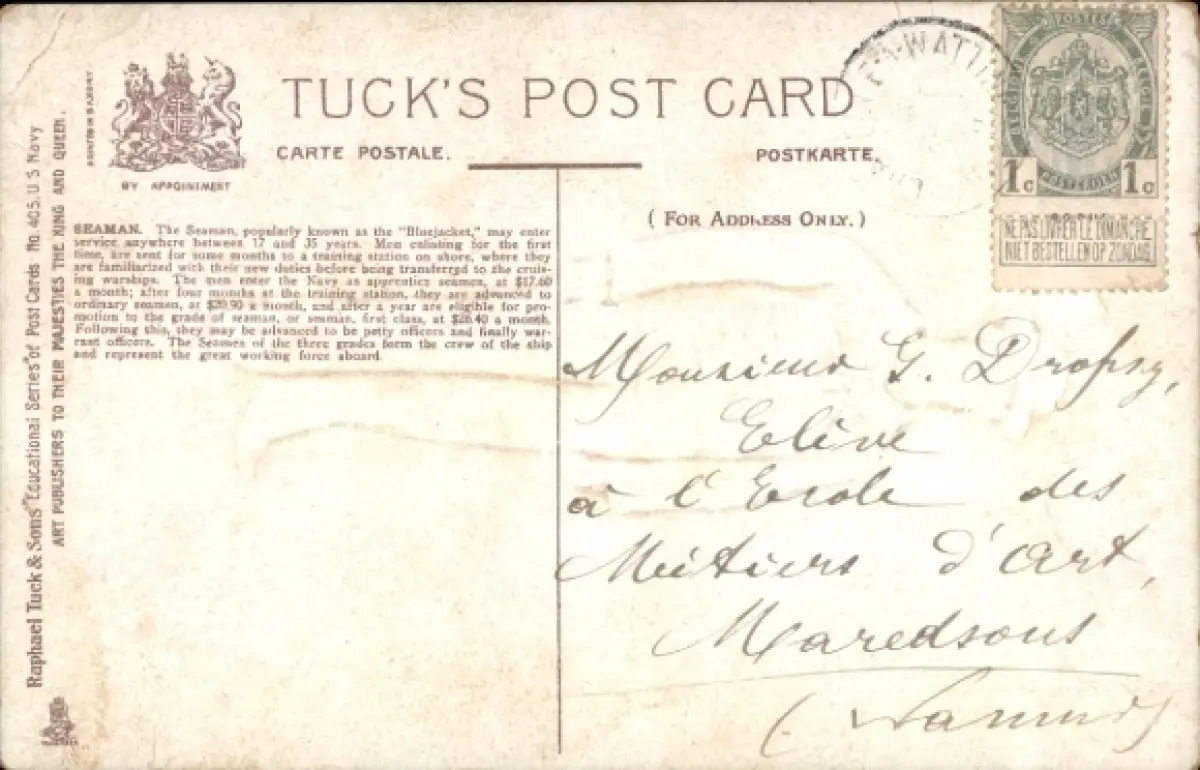 TUCK'S POST CARD
CARTE POSTALE.
POSTKARTE.
BY APPOINTMENT
(FOR ADDRESS ONLY.)
Raphael Tuck & Sons' "Educational Series" of Post Cards No 405. U.S Navy
ART PUBLISHERS TO THEIR MAJESTIES THE KING AND QUEEN.
SEAMAN. The Seaman, popularly known as the "Bluejacket," may enter
service anywhere between 17 and 35 years. Men enlisting for the first
time, are sent for some months to a training station on shore, where they
are familiarized with their new duties before being transferrgd to the cruis-
ing warships. The men enter the Navy as apprentice seamen, at $17.60
a month; after four months at the training station, they are advanced to
ordinary seamen, at $20.90 a month, and after a year are eligible for pro-
motion to the grade of seaman, or seaman, first class, at $26.40 a month.
Following this, they may be advanced to be petty officers and finally war-
rant officers. The Seamen of the three grades form the crew of the ship
and represent the great working force aboard.
WATT
POSTES
1c 1c
POSTERIJEN
NE PAS LIVRER LE DIMANCHE
NIET BESTELLEN OP ZONDAG
Monsieur G. Dropsy,
Elève
à l'Ecole des
Métiers d'Art,
Maredsous
(Namur)